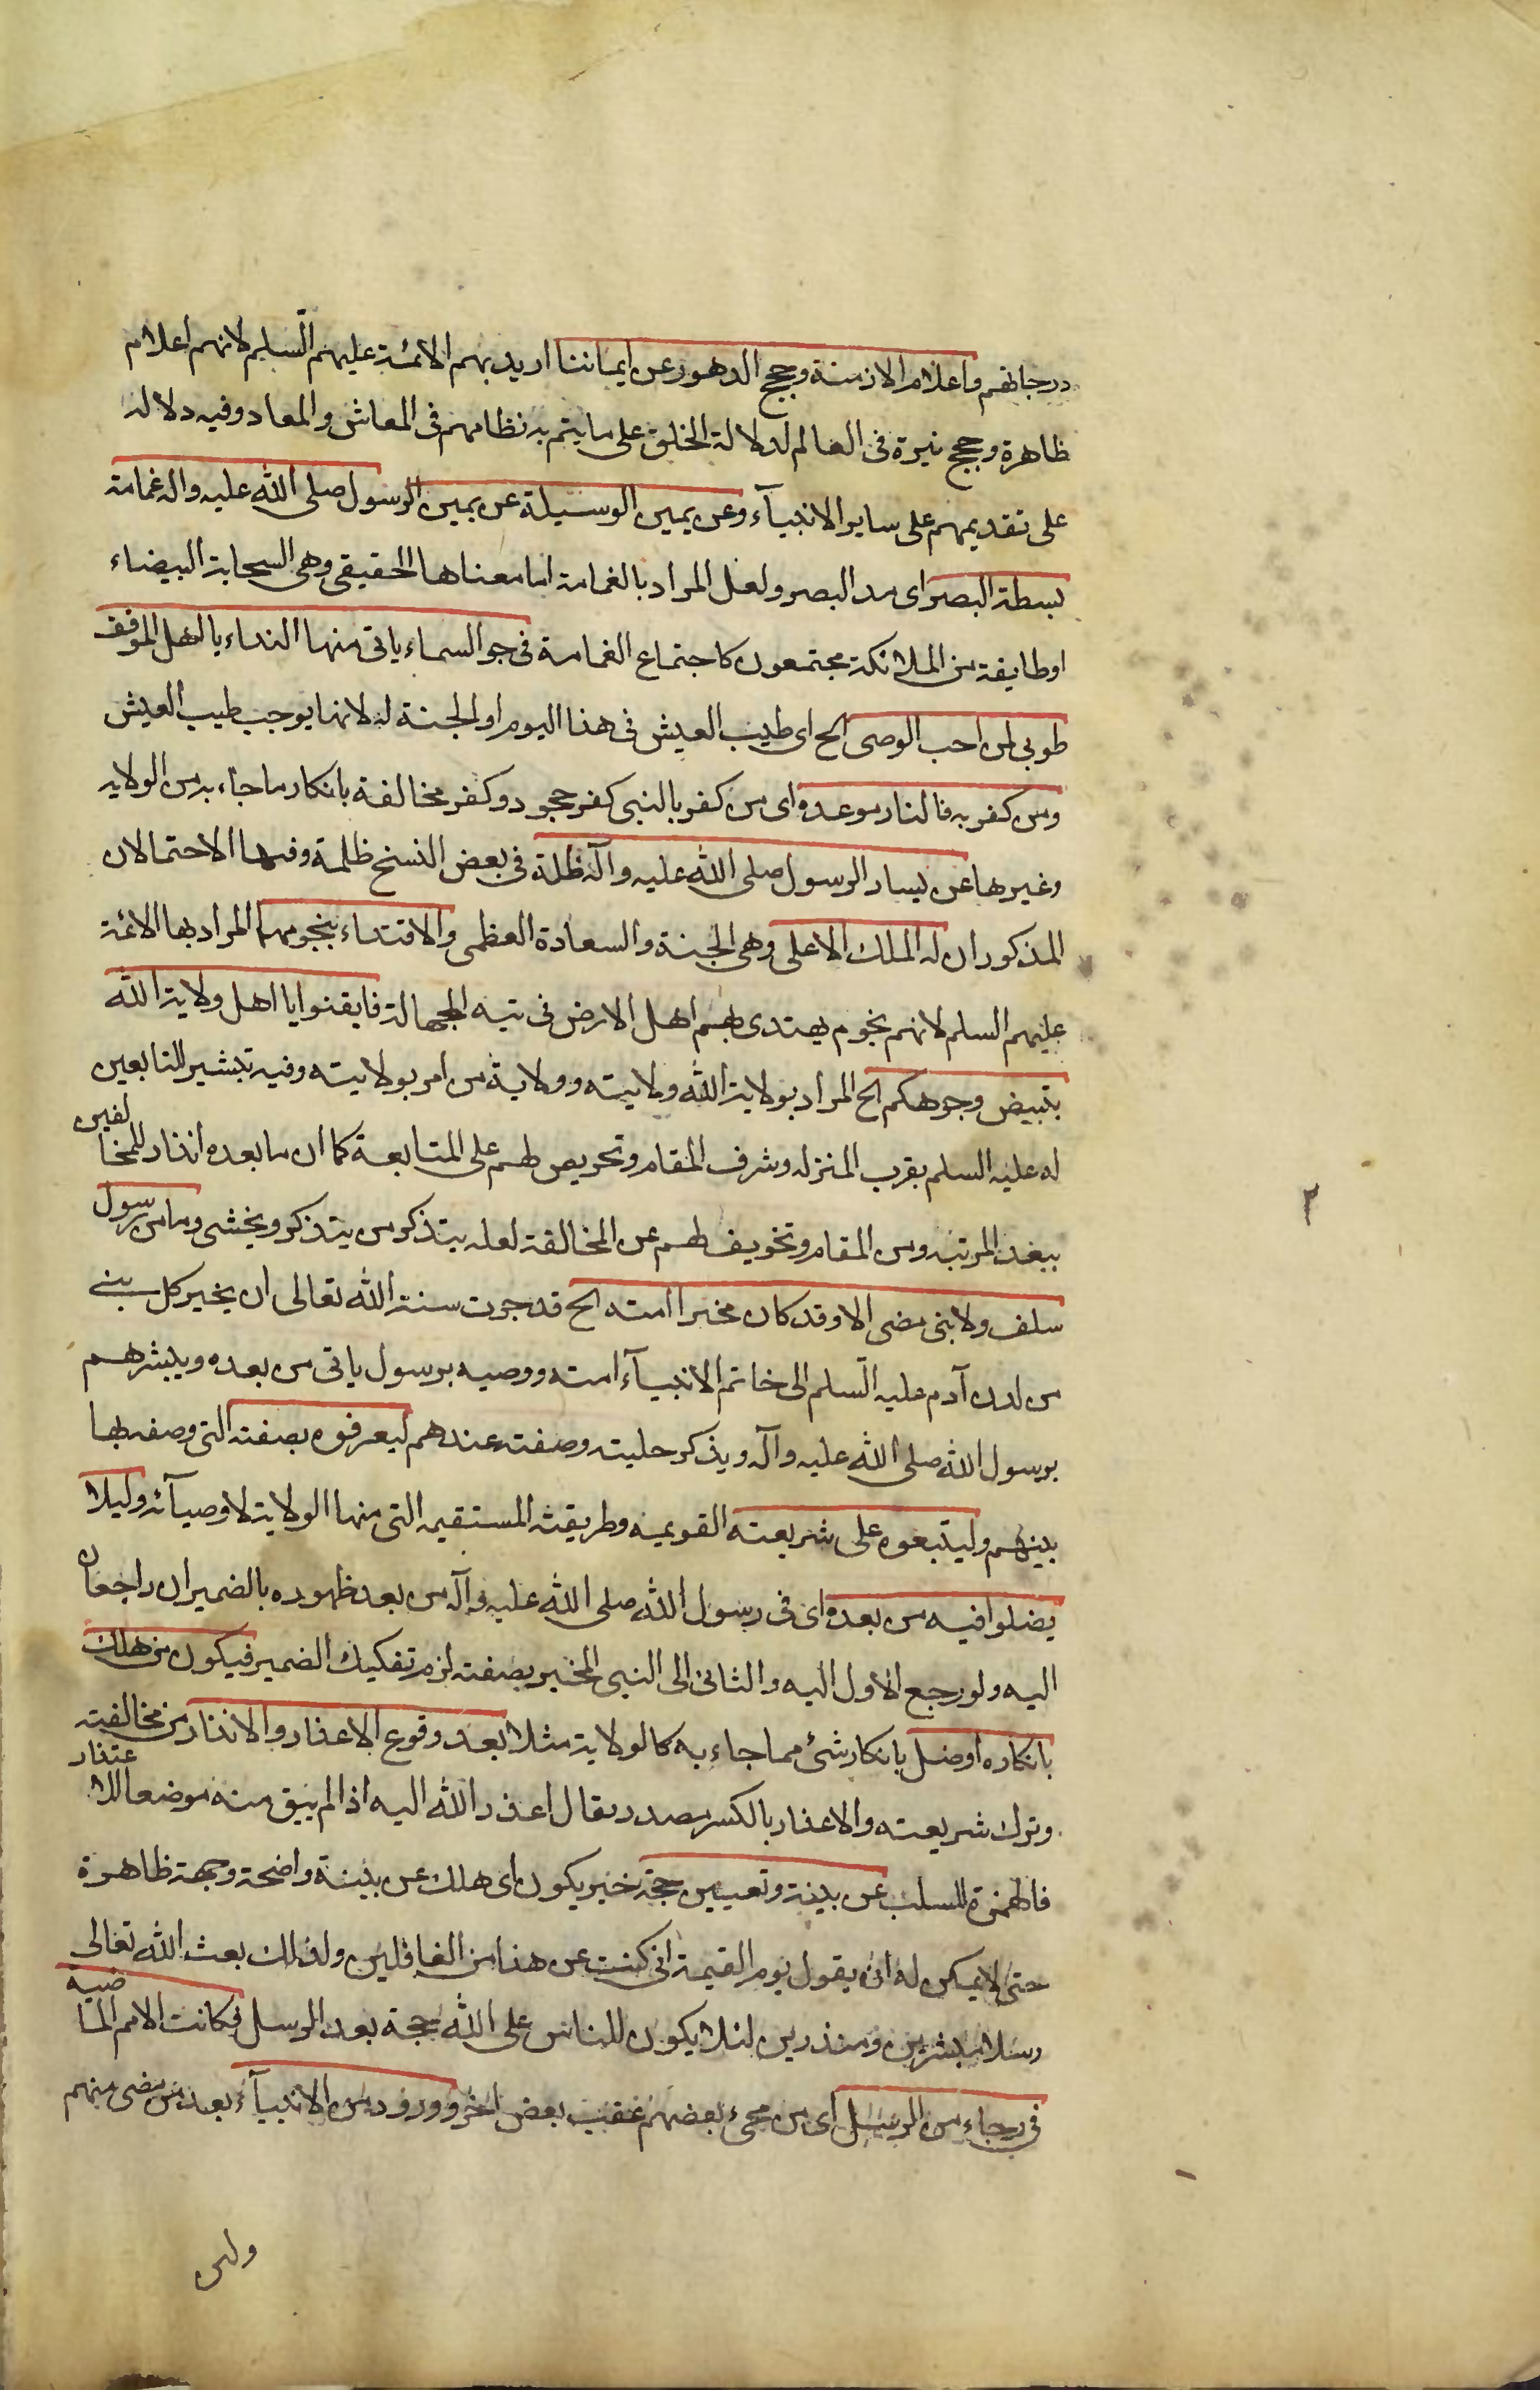 درجاتهم واعلام الازمنة وحجج الدهور عن ايماننا اريد بهم الائمة عليهم السّلم لانهم اعلام
ظاهرة وحجج نيرة فى العالم لدلالة الخلق على ما يتم به نظامهم فى المعاش والمعاد وفيه دلاله
على تقديمهم على ساير الانبيآء وعن يمين الوسيلة عن يمين الرسول صلى الله عليه واله غمامة
بسطة البصر اى مد البصر ولعل المراد بالغمامة اما معناها الحقيقى وهى السحابة البيضاء
او طايفة من الملائكة مجتمعون كاجتماع الغمامة فى جو السماء ياتى منها النداء يا اهل الموقف
طوبى لمن احب الوصى الخ اى طيب العيش فى هذا اليوم او الجنة له لانها يوجب طيب العيش
ومن كفر به فالنار موعده اى من كفر بالنبى كفر جحود وكفر مخالفة بانكار ما جاء به من الولايه
وغيرها عن يسار الرسول صلى الله عليه وآله ظلة فى بعض النسخ ظلمة وفيها الاحتمالان
المذكوران له الملك الاعلى وهى الجنة والسعادة العظمى والاقتداء بنجومهما المراد بها الائمة
عليهم السلم لانهم نجوم يهتدى بهم اهل الارض فى تيه الجهالة فايقنوا يا اهل ولاية الله
بتبييض وجوهكم الخ المراد بولاية الله ولايته وولاية من امر بولايته وفيه تبشير للتابعين
له عليه السلم بقرب المنزله وشرف المقام وتحريص لهم على المتابعة كما ان ما بعده انذار للمخالفين
ببعد المرتبه ومن المقام وتخويف لهم عن المخالفة لعله يتذكر من يتذكر ويخشى وما من رسول
سلف ولا نبى مضى الا وقد كان مخبرا امته الخ قد جرت سنة الله تعالى ان يخبر كل نبى
من لدن آدم عليه السّلم الى خاتم الانبيآء امته ووصيه برسول ياتى من بعده ويبشرهم
برسول الله صلى الله عليه وآله ويذكر حليته وصفته عندهم ليعرفوه بصفته التى وصفه بها
بينهم وليتبعوه على شريعته القويمه وطريقته المستقيمه التى منها الولاية لاوصيآئه وليلا
يضلوا فيه من بعده اى فى رسول الله صلى الله عليه وآله من بعد ظهوره بالضميران راجعان
اليه ولو رجع الاول اليه والثانى الى النبى المخبر بصفته لزم تفكيك الضمير فيكون من هلك
بانكاره او ضل بانكار شئ مما جاء به كالولاية مثلا بعد وقوع الاعذار والانذار من مخالفته
وترك شريعته والاعذار بالكسر مصدر يقال اعذر الله اليه اذا لم يبق منه موضعا للاعتذار
فالهمزة للسلب عن بينة وتعيين حجة خبر يكون اى هلك عن بينة واضحة وجهة ظاهرة
حتى لا يمكن له ان يقول يوم القيمة انى كنت عن هذا من الغافلين ولذلك بعث الله تعالى
رسلا مبشرين ومنذرين لئلا يكون للناس على الله حجة بعد الرسل فكانت الامم الماضية
فى رجاء من الرسل اى من مجىء بعضهم عقيب بعض اخر وورود من الانبيآء بعد من مضى منهم
ولئن
٢